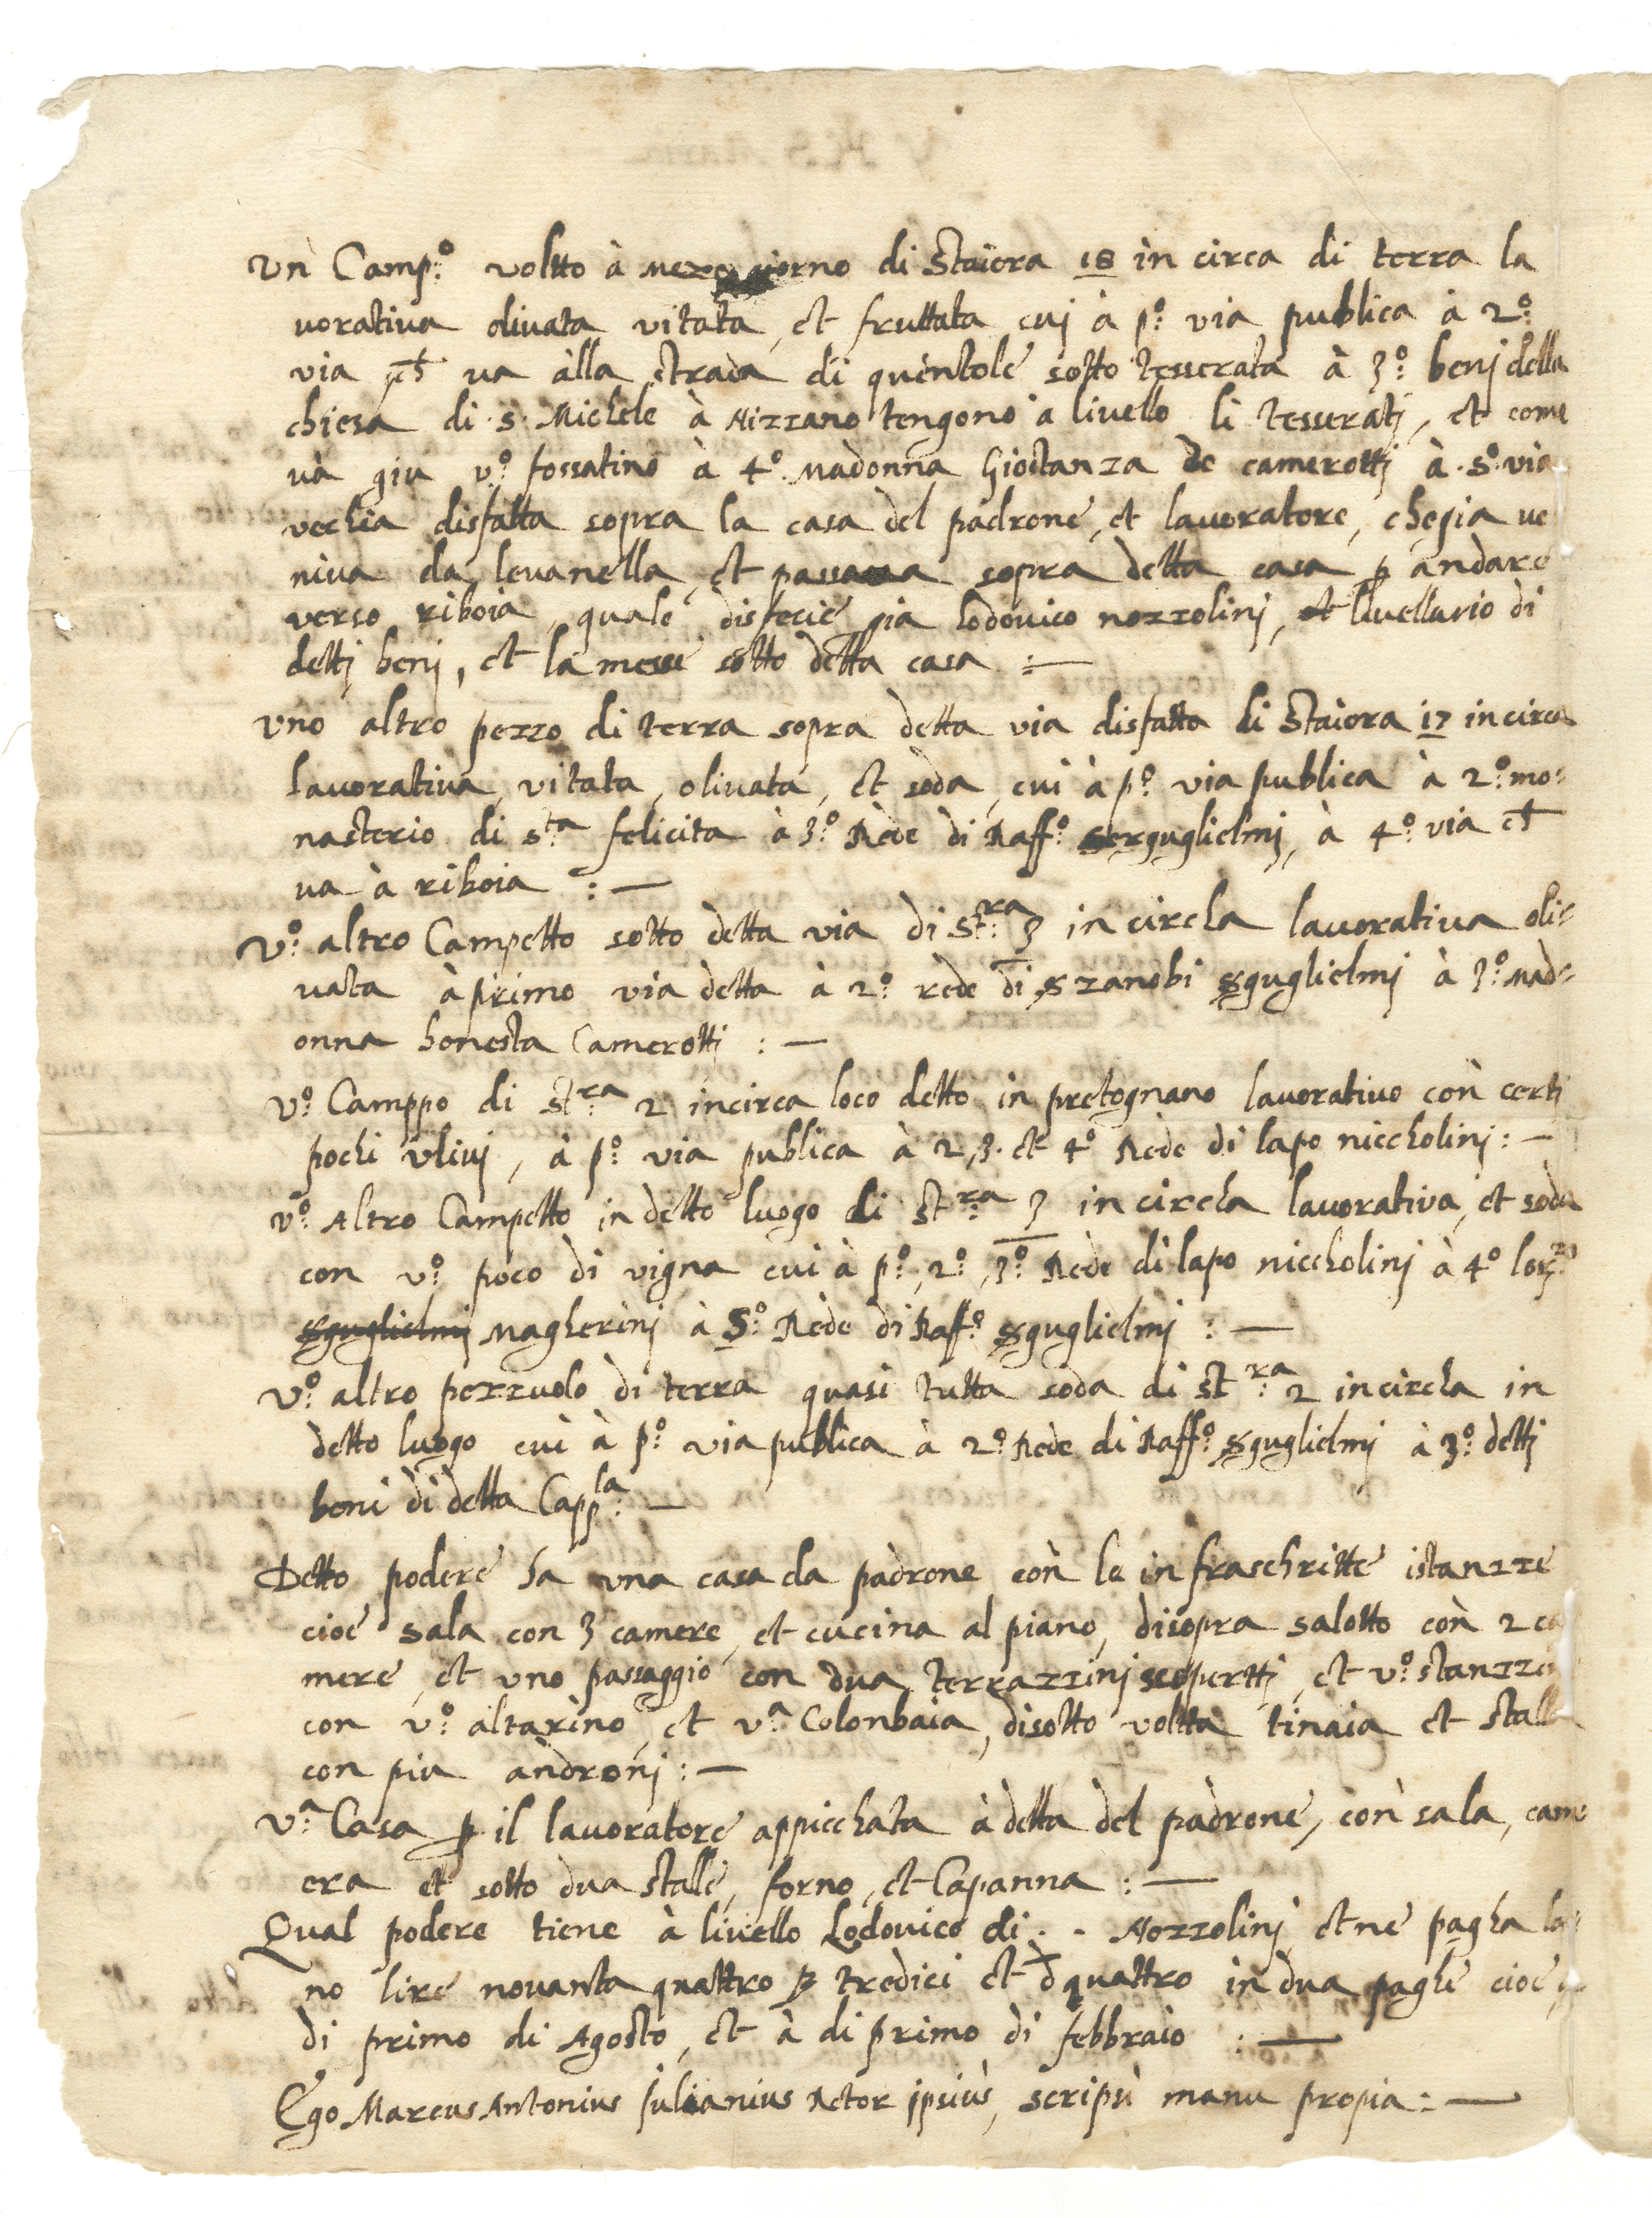 Un Camp:º voltto à mezo giorno di Staiora 18 in circa di terra la
uorativa oliuata vitata, et fruttata cuj à p:º via publica à 2:º
via ch ua àlla strada di quentole sotto tesserata à 3:º benj della
chiesa di S. Michele à Nizzano tengono à livello li tesseratj, et come
uà giu v:º fossatino à 4:º Madonna Giostanza de camerottj à 5:º via
vechia disfatta sopra la casa del padrone, et lauoratore, che gia ue
niua da levanella, et passaua sopra detta casa p andare
verso riboia, quale disfecie gia lodouico nozzolinj, et liuellario di
dettj benj, et la messe sotto detta casa :—
Uno altro pezzo di terra sopra detta via disfatta di Staiora 17 in circa
lauorativa, vitata, oliuata, et soda, cui à p:º via publica à 2:º mo:
nasterio di s:ta felicita à 3:º Rede di Raff:º serguglielmj, à 4:º via ch
ua à riboia :—
V:º altro Campetto sotto detta via di st:ra 3 in circha lauorativa oli:
uata à primo via detta à 2:º rede di S zanobi Sguglielmj à 3:º Mad:
onna honesta Camerottj :—
V:º Camppo di st:ra 2 incirca loco detto in pretognano lauorativo con certj
pochi vliuj, à p:º via publica à 2, 3. et 4:º Rede di lapo niccholinj :—
V:º Altro Campetto in detto luogo di st:ra 3 in circha lauorativa, et soda
con v:º poco di vigna cui à p:º, 2:º, 3:º Rede di lapo niccholinj à 4:º lor:zo
Sguglielmj Magherinj à 5:º Rede di Raff:º Sguglielmj :—
V:º altro pezzuolo di terra quasi tutta soda di st:ra 2 in circha in
detto luogo cui à p:º via publica à 2:º Rede di Raff:º Sguglielmj à 3:º dettj
beni di detta Capp:la —
Detto podere ha una casa da padrone con le infraschritte istanzze
cioe sala con 3 camere, et cucina al piano, disopra salotto con 2 ca
mere, et uno passaggio con dua terrazzinj scoperttj, et v:º stanzzi
con v:º altarino, et v:a Colonbaia, disotto voltta tinaia et stalla
con piu andronj :—
V:a Casa p il lauoratore appicchata à detta del padrone, con sala, cam
era et sotto dua stalle, forno, et Capanna :—
Qual podere tiene à livello Lodovico di . . Nozzolinj et ne pagha la:
no lire novanta quattro ß tredici et d quattro in dua paghe cioe
di primo di Agosto, et à di primo di febbraio :—
Ego Marcus Antonius Julianius Retor ipsius, scripsi manu propia :—